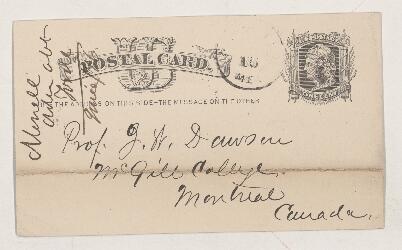 POSTAL CARD.
16
THE ADDRESS ON THIS SIDE–THE MESSAGE ON THE OTHER
Prof. J. W. Dawson
McGill College.
Montreal
Canada.